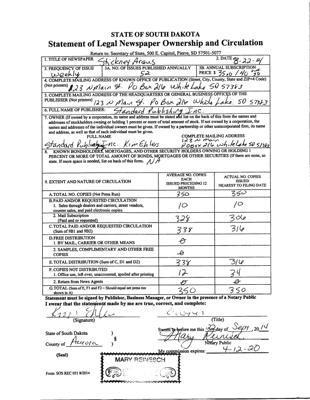 STATE OF SOUTH DAKOTA
Statement of Legal Newspaper Ownership and Circulation
Return to: Secretary of State, 500 E. Capitol, Pierre, SD 57501-5077
1. TITLE OF NEWSPAPER Stickney Argus 2. DATE 9-22-14
3. FREQUENCY OF ISSUE Weekly
3A. NO. OF ISSUES PUBLISHED ANNUALLY 52
3B. ANNUAL SUBSCRIPTION PRICE $
4. COMPLETE MAILING ADDRESS OF KNOWN OFFICE OF PUBLICATION (Street, City, County, State and ZIP+4 Code)
(Not printers) 123 N Main St PO Box 216 White Lake SD 57383
5. COMPLETE MAILING ADDRESS OF THE HEADQUARTERS OR GENERAL BUSINESS OFFICES OF THE
PUBLISHER (Not printer) 123 N Main St PO Box 216 White Lake SD 57383
6. FULL NAME OF PUBLISHER: Standard Publishing Inc.
7. OWNER (If owned by a corporation, its name and address must be stated and list on the back of this form the names and
addresses of stockholders owning or holding 1 percent or more of total amount of stock. If not owned by a corporation, the
names and addresses of the individual owners must be given. If owned by a partnership or other unincorporated firm, its name
and address, as well as that of each individual must be given.
FULL NAME COMPLETE MAILING ADDRESS
Standard Publishing Inc. Kim Ehlers PO Box 216 White Lake SD 57383
8. KNOWN BONDHOLDERS, MORTGAGES, AND OTHER SECURITY HOLDERS OWNING OR HOLDING 1
PERCENT OR MORE OF TOTAL AMOUNT OF BONDS, MORTGAGES OR OTHER SECURITIES (If there are none, so
state. If more space is needed, list on back of this form. N/A
9. EXTENT AND NATURE OF CIRCULATION
AVERAGE NO. COPIES EACH ISSUED PRECEDING 12 MONTHS
ACTUAL NO. COPIES ISSUED NEAREST TO FILING DATE
A. TOTAL NO. COPIES (Net Press Run) 350 350
B. PAID AND/OR REQUESTED CIRCULATION
1. Sales through dealers and carriers, street vendors,
counter sales, and paid electronic copies 10 10
2. Mail Subscription
(Paid and or requested) 328 306
C. TOTAL PAID AND/OR REQUESTED CIRCULATION
(Sum of 9B1 and 9B2) 338 316
D. FREE DISTRIBUTION
1. BY MAIL, CARRIER OR OTHER MEANS
2. SAMPLES, COMPLIMENTARY AND OTHER FREE
COPIES
E. TOTAL DISTRIBUTION (Sum of C, D1 and D2) 338 316
F. COPIES NOT DISTRIBUTED
1. Office use, left over, unaccounted, spoiled after printing 12 34
2. Return from News Agents
G. TOTAL (Sum of E, F1 and F2 - Should equal net press run
shown in A) 350 350
Statement must be signed by Publisher, Business Manager, or Owner in the presence of a Notary Public
I swear that the statements made by me are true, correct, and complete:
(Signature) (Title)
State of South Dakota )
County of Aurora ) §
Sworn to before me this day of Sept, 2014
Mary Reinesch
Notary Public
My commission expires: 4-12-20
(Seal)
MARY REINESCH
Form: SOS REC 051 8/2014